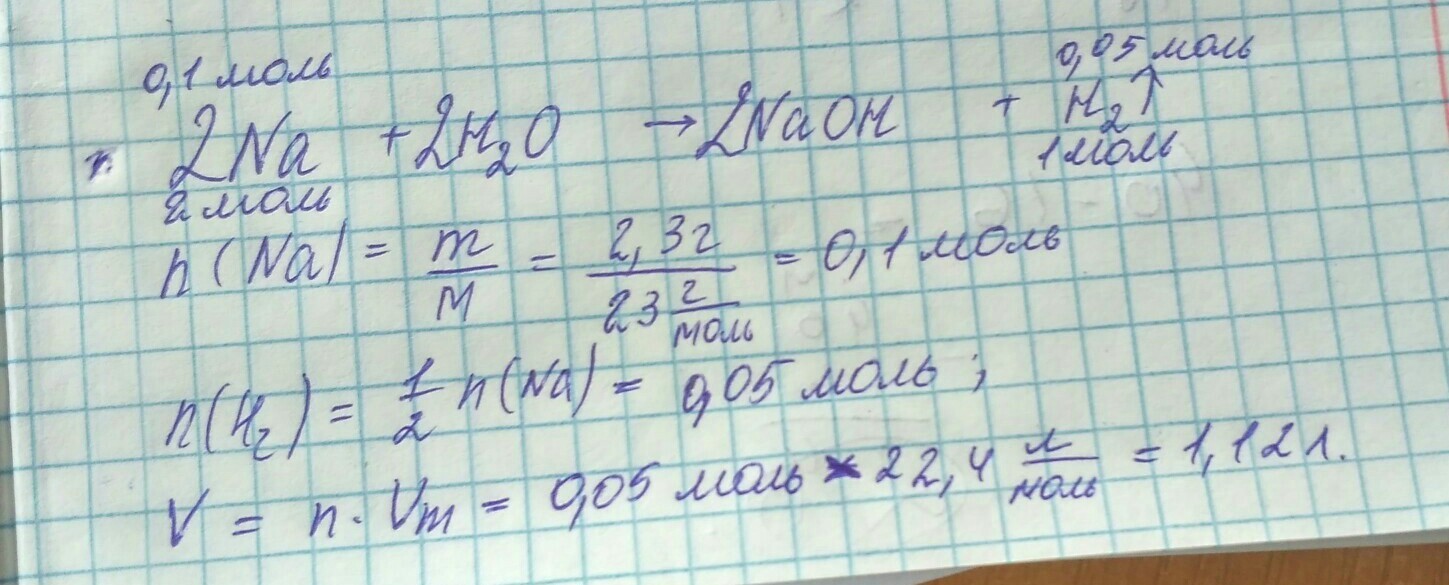 0,1 моль 0,05 моль
2Na + 2H₂O → 2NaOH + H₂↑
2 моль 1 моль
n(Na) = m/M = 2,3г / 23 г/моль = 0,1 моль
n(H₂) = 1/2 n(Na) = 0,05 моль ;
V = n · Vm = 0,05 моль × 22,4 л/моль = 1,12 л.